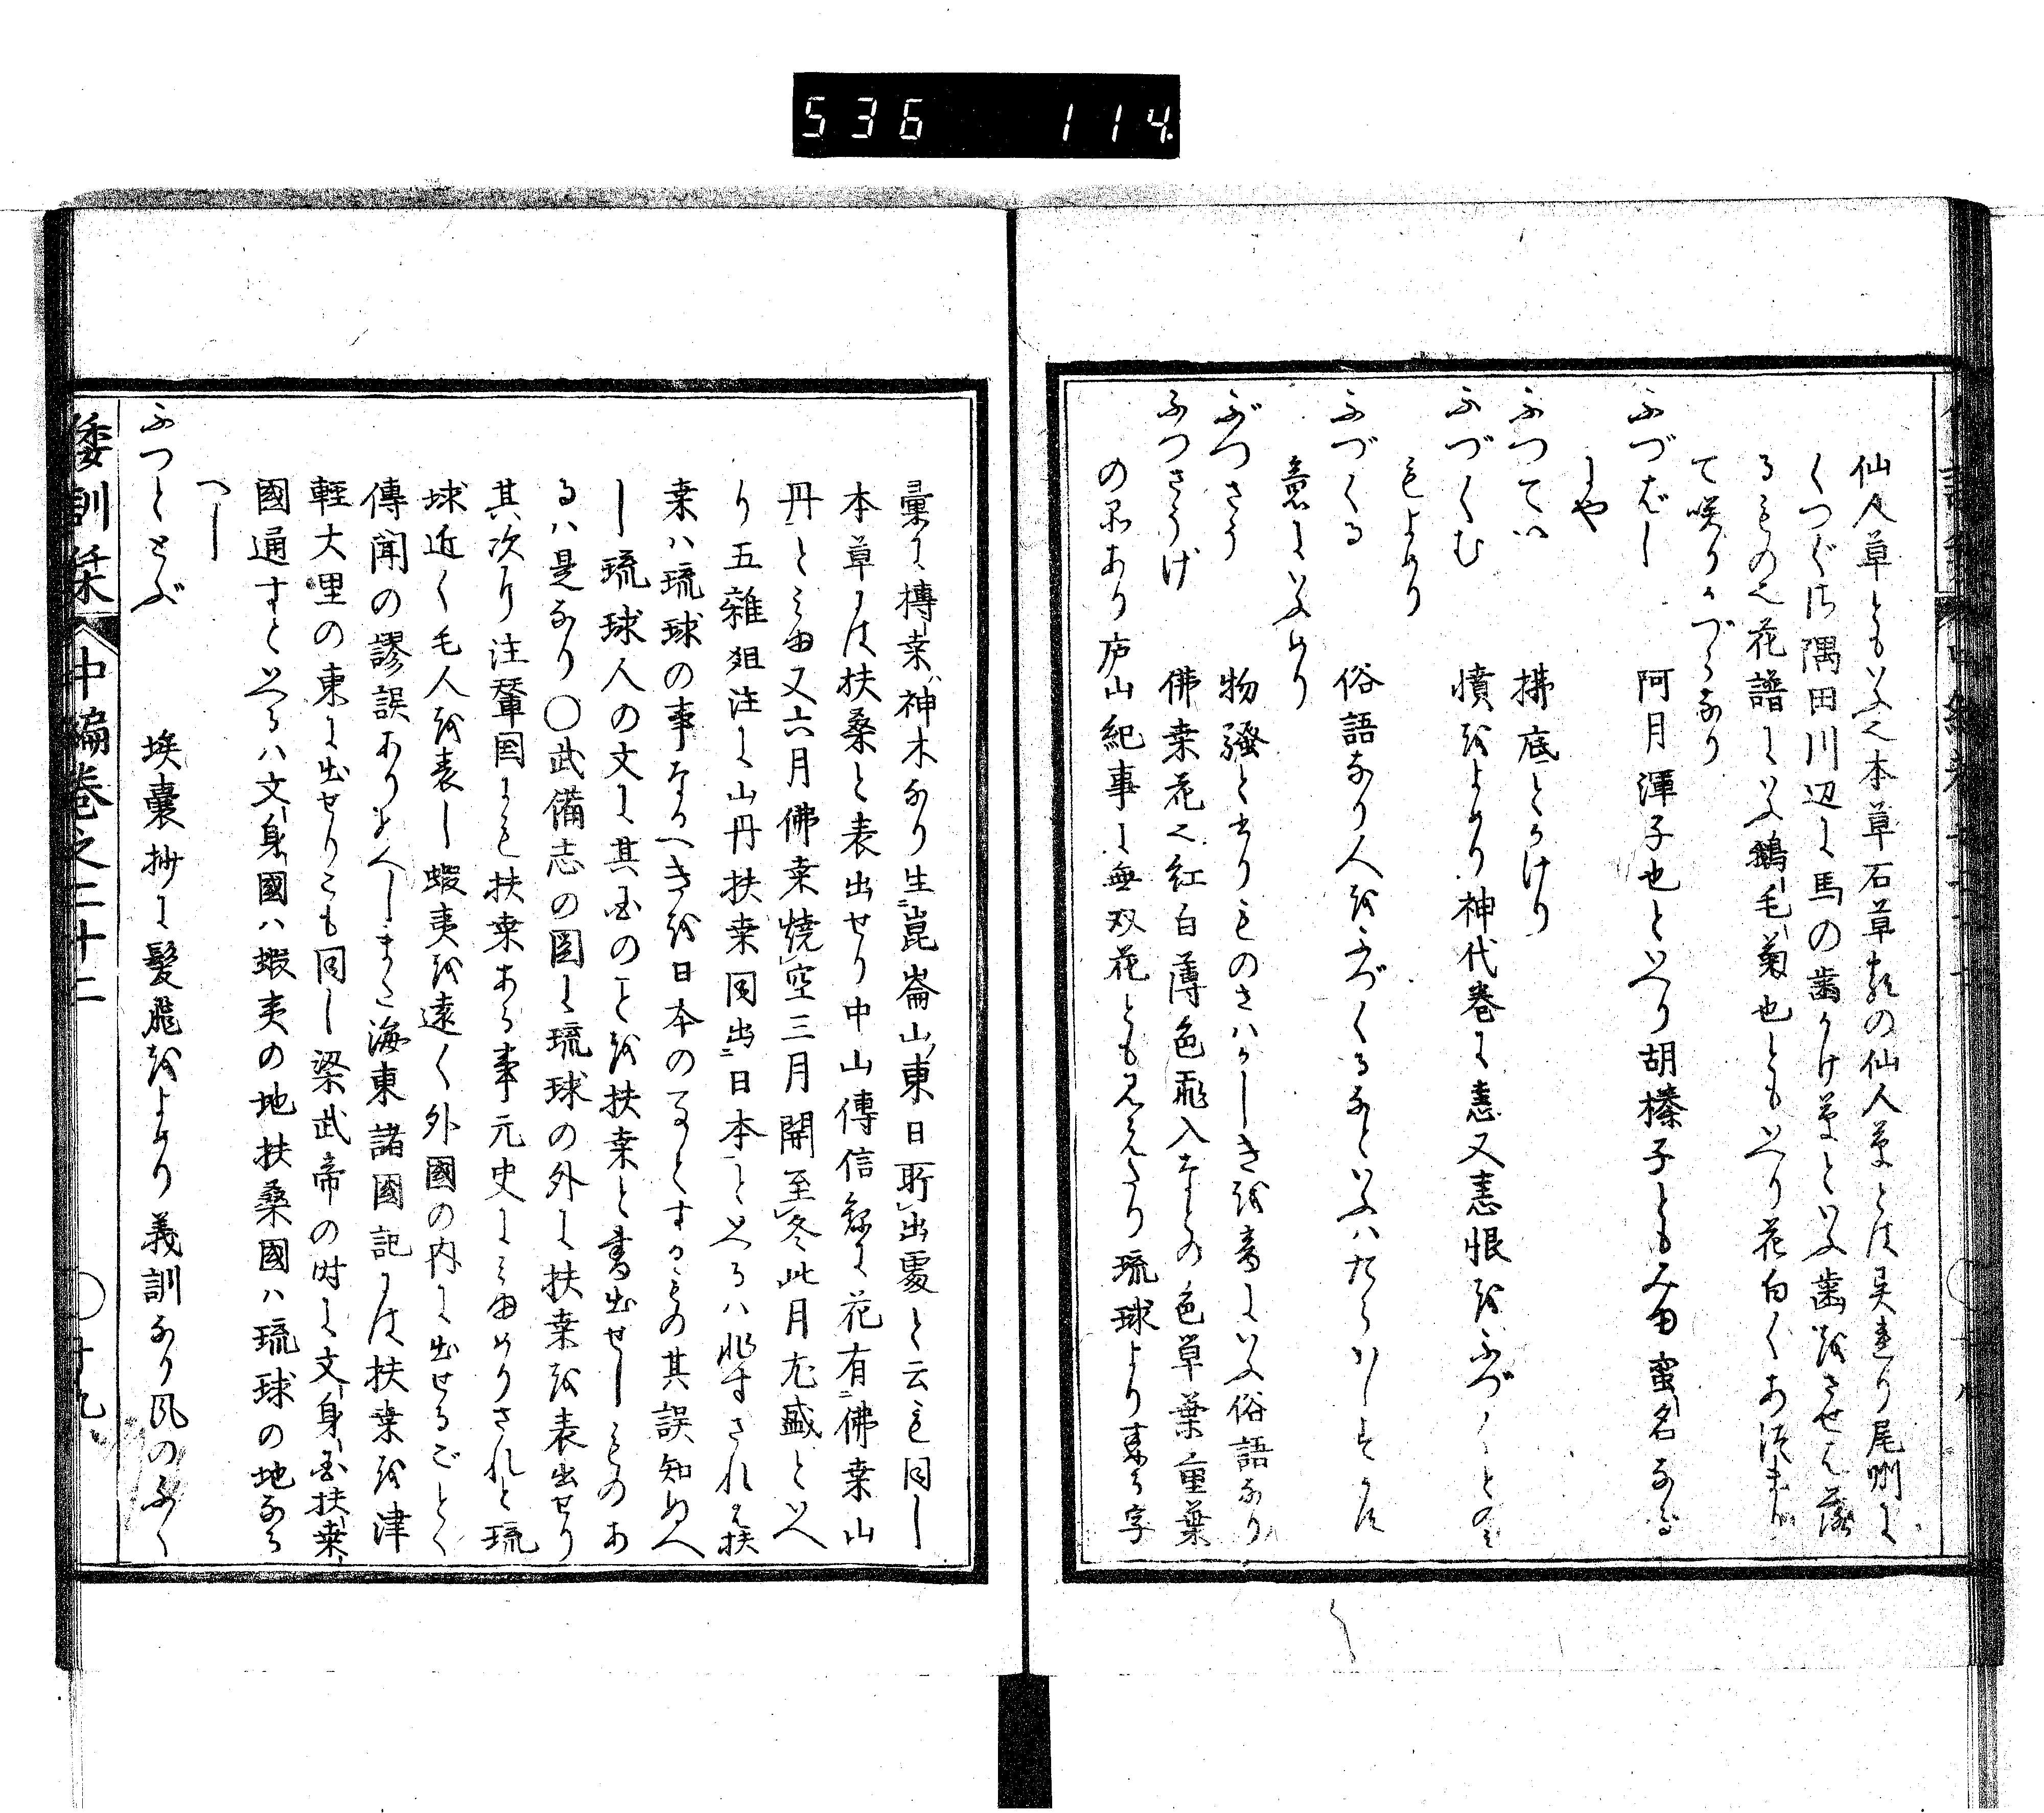 536 114.
仙人草ともいふ之本草石草類の仙人草とは異達り尾州に
くつぐさ隅田川辺に馬の歯かけ草といふ歯をさせは落
るもの之花譜にいふ鵝毛菊也ともいへり花白くあつまり
て咲りかづらなり
ふづばし 阿月渾子也といへり胡榛子ともみゆ蛮名なる
にや
ふつてい 拂底とかけり
ふづくむ 憤をよめり神代巻に恚又恚恨をふづくとの
もよめり
ふづくる 俗語なり人をふづくるなといふハたらかしすかす
意にいふめり
ぶつさう 物騒と書りものさハかしきを音にいふ俗語なり
ふつさうげ 佛桒花之紅白薄色飛入なとの色草葉重葉
の品あり庐山紀事に無双花とも見えたり琉球より来る字
彙に榑桒神木なり生崑崙山東日所出處と云も同し
本草には扶桑と表出せり中山傳信録に花有佛桒山
丹とみゆ又六月佛桒燒空三月開至冬此月尤盛といへ
り五雜爼注に山丹扶桒同出日本といへるハ非すされは扶
桒ハ琉球の事なるへきを日本の事とするもの其誤知ぬへ
し琉球人の文に其国のことを扶桒と書出せしものあ
るハ是なり〇武備志の圖に琉球の外に扶桒を表出せり
其次り注輦囯にも扶桒ある事元史にみゆめりされと琉
球近く毛人を表し蝦夷を遠く外國の内に出せるごとく
傳聞の謬誤ありとへしまた海東諸國記には扶桒を津
輕大里の東に出せりこも同し梁武帝の時に文身国扶桒
國通すといへるハ文身國ハ蝦夷の地扶桑國ハ琉球の地なる
へし
ふつととぶ 埃囊抄に髪飛をよめり義訓なり風のふく
倭訓栞 中編巻之二十二 〇 十九